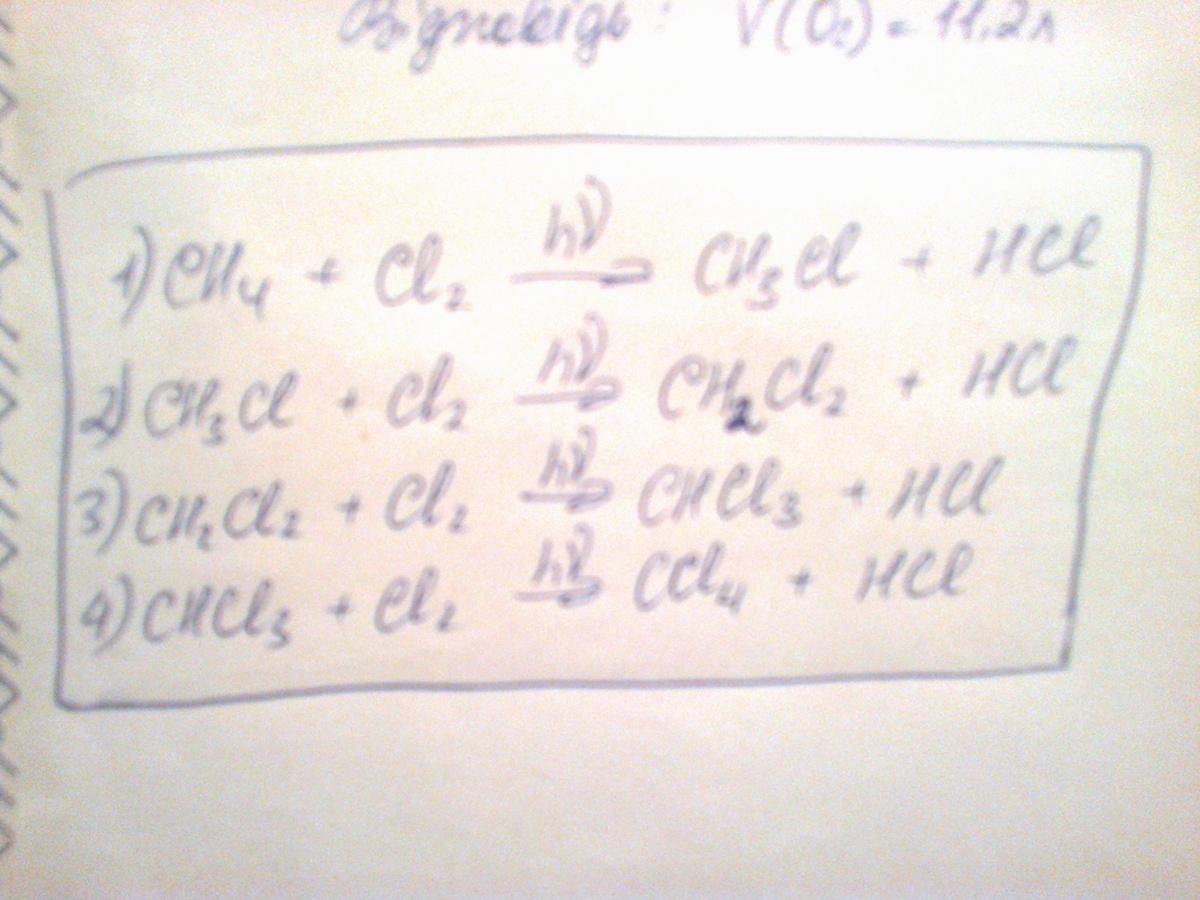 Відповідь: V(O₂) = 11,2л
1) CH₄ + Cl₂ hν→ CH₃Cl + HCl
2) CH₃Cl + Cl₂ hν→ CH₂Cl₂ + HCl
3) CH₂Cl₂ + Cl₂ hν→ CHCl₃ + HCl
4) CHCl₃ + Cl₂ hν→ CCl₄ + HCl